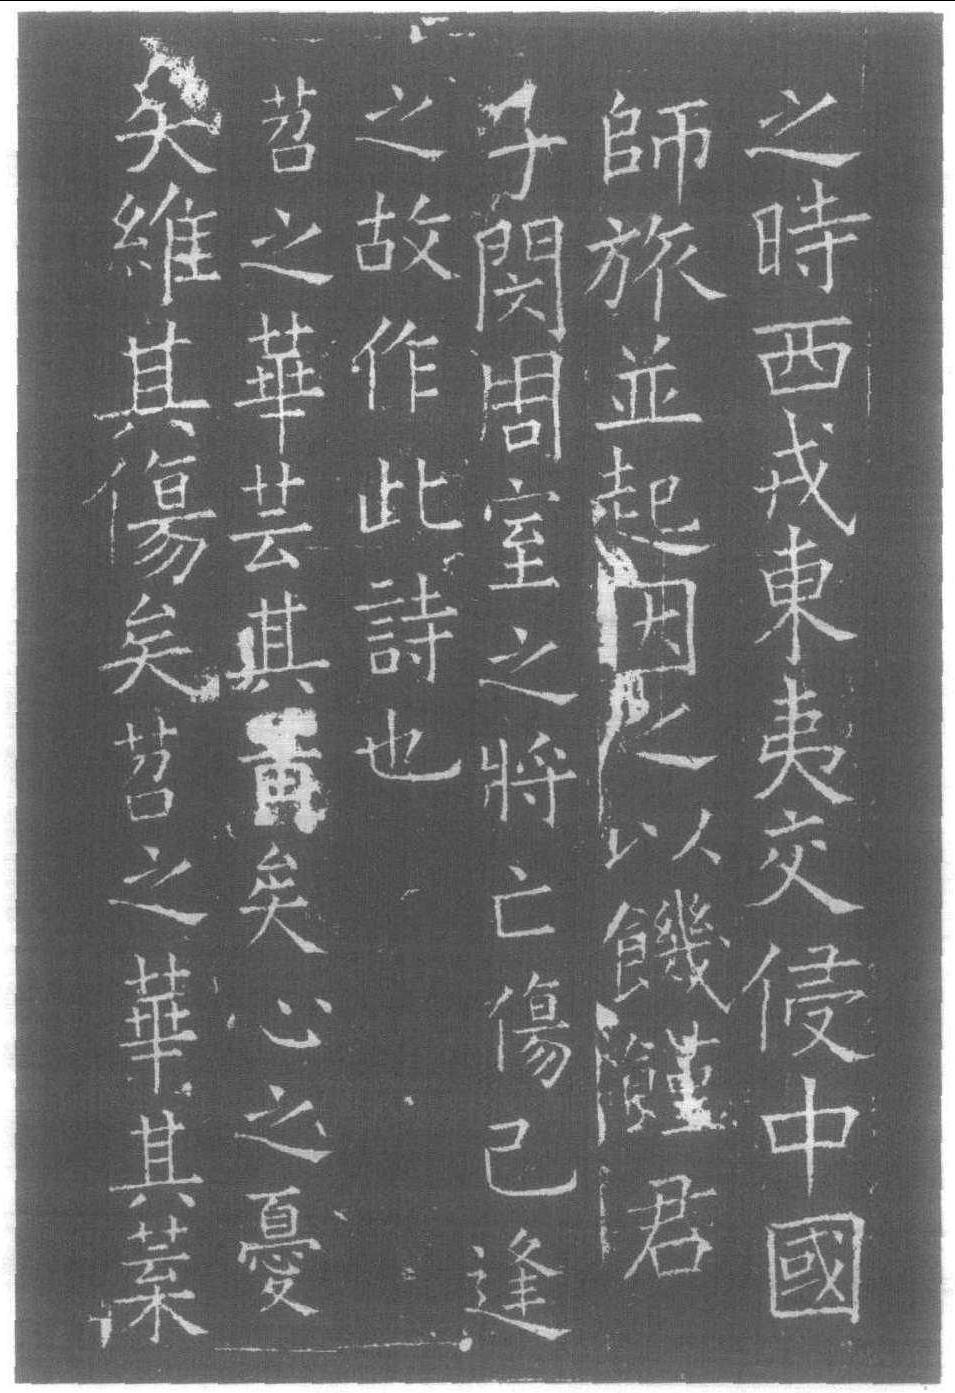 之時西戎東夷交侵中國
師旅並起因之以饑饉君
子閔周室之將亡傷己逢
之故作此詩也
苕之華芸其黃矣心之憂
矣維其傷矣苕之華其葉